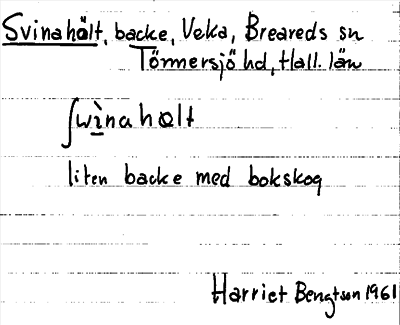 Svinahålt, backe, Veka, Breareds sn
Tönnersjö hd, Hall. län
ʃwìnahɑlt
liten backe med bokskog
Harriet Bengtson 1961